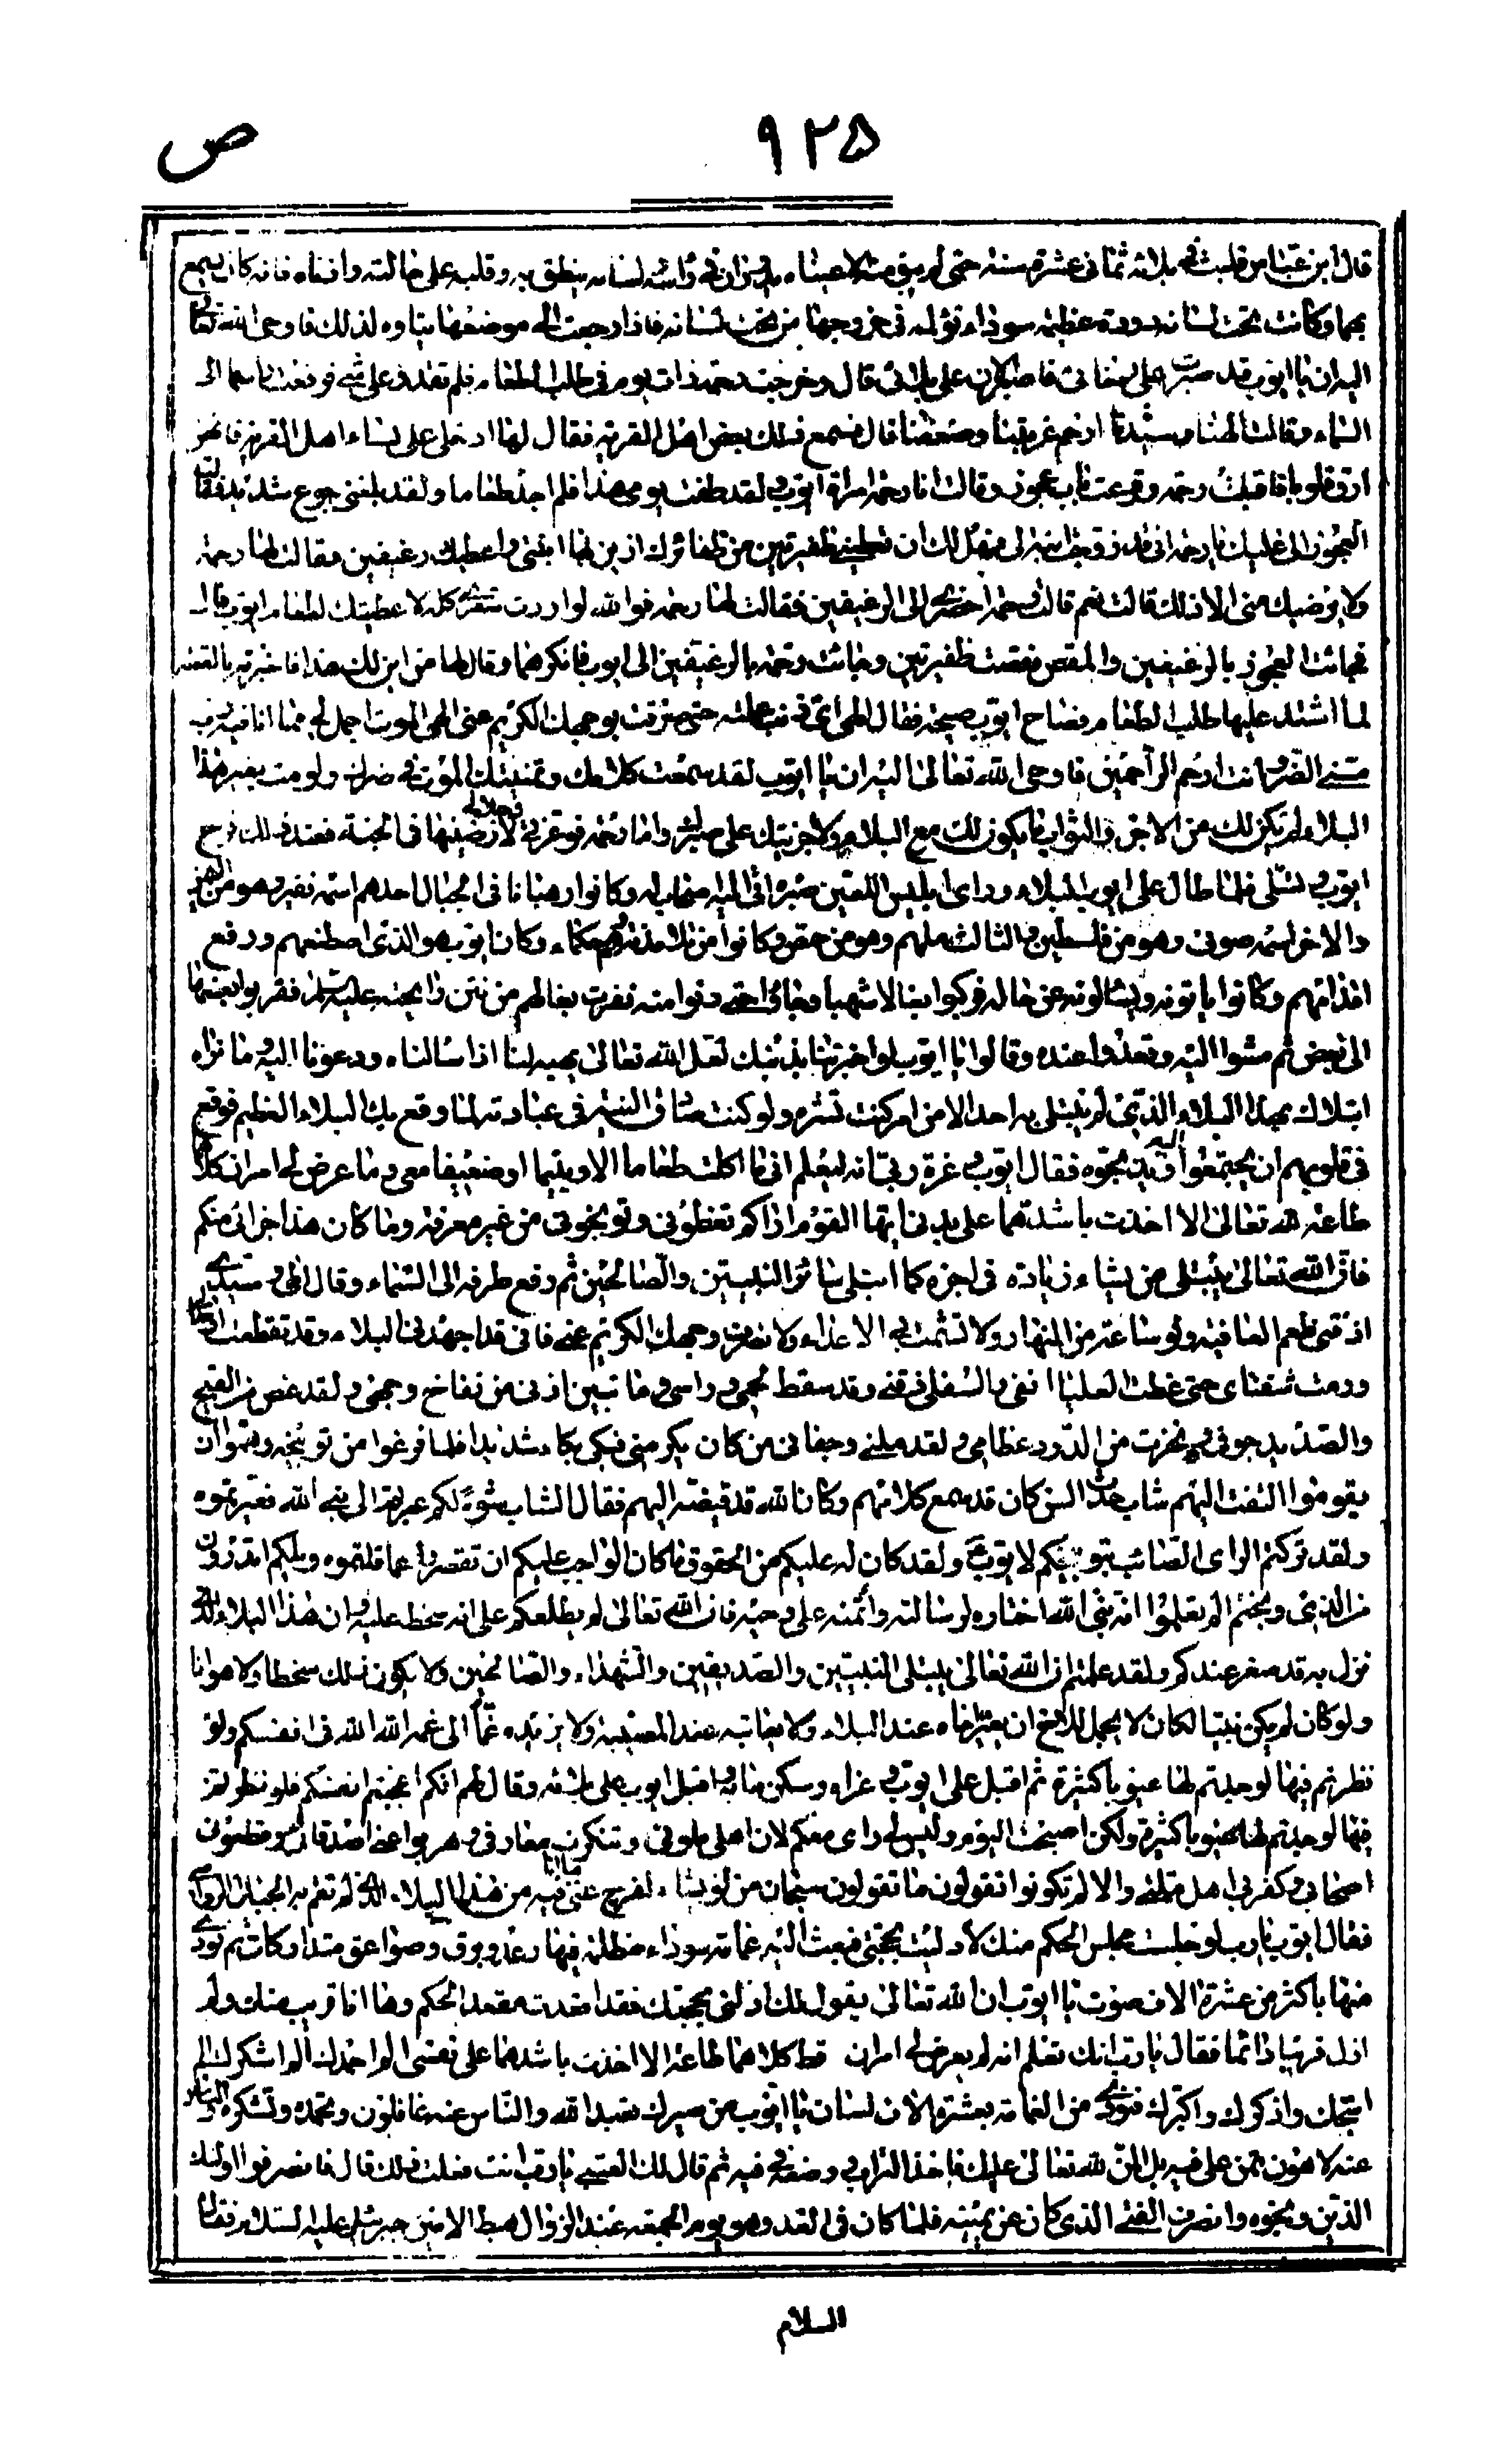 ص
٩٢٥
قال ابن عباس فلبث في بلائه ثمانى عشرة سنة حتى لم يبق منه الا عيناه تدوران فى راسه لسانه ينطق به وقلبه على حالته واذناه فانه كان يسمع
بهما وكانت تحت لسانه دودة عظيمة سوداء تؤلمه فى خروجها من تحت لسانه فاذا رجعت الى موضعها يتاوه لذلك فاوحى الله تعالى
اليه ان يا ايوب قد صبرت على نعمائى فاصبر الان على بلائى قال وخرجت رحمة ذات يوم فى طلب الطعام فلم تقدر على شئ فرفعت راسها الى
السماء وقالت الهنا وسيدنا ارحم غربتنا وضعفنا قال فسمع ذلك بعض اهل القرية فقال لها ادخلى على نساء اهل القرية فانهن
ارق قلوبا فاقبلت رحمة وقرعت باب عجوز وقالت انا رحمة امراة ايوب لقد طفت يومى هذا فلم اجد طعاما ولقد بلغنى جوع شديد فقالت
العجوز الى غليك يا رحمة انى قد زوجت ابنة لى فهل لك ان تعطينى ظفيرتين من ظفائرك ازين بهما ابنتى واعطيك رغيفين فقالت لها رحمة
ولا يرضيك منى الا ذلك قالت نعم قالت رحمة احضرى الى الرغيفين فقالت لها رحمة فوالله لو اردت شعرى كله لاعطيتك لطعام ايوب قال
فجائت العجوز بالرغيفين والمقص فقصت ظفيرتين وجائت رحمة بالرغيفين الى ايوب فانكرهما وقال لها من اين لك هذا فاخبرته بالقصة
لما اشتد عليها طلب الطعام فصاح ايوب صيحة فقال الهى اى ذنب عملته حتى صرفت بوجهك الكريم عنى الهى الموت اجمل لى مما انا فيه رب
مسنى الضر وانت ارحم الراحمين فاوحى الله تعالى اليه ان يا ايوب لقد سمعت كلامك وتمنيتك الموت فى ضرك ولو مت بغير هذا
البلاء لم يكن لك من الاجر والثواب ما يكون لك مع البلاء ولاجزينك على صبرك واما رحمة فوعزتى وجلالى لارضينها فى الجنة فعند ذلك فرح
ايوب وتسلى فلما طال على ايوب البلاء وراى ابليس اللعين صبره اتى الى اصحاب له وكانوا رهبانا فى الجبال احدهم اسمه نفير وهو من اليمن
والاخر اسمه صوفى وهو من فلسطين والثالث ملهم وهو من حمص وكانوا من تلامذته وهم حكماء وكان ايوب هو الذى اصطنعهم ورفع
اقدامهم وكانوا ياتونه ويسالونه عن حاله فركبوا بغالا شهبا وجاؤا حتى دنوا منه نفرت بغالهم من نتن رائحته عليه السلام فقربوا بعضها
الى بعض ثم مشوا اليه وقعدوا عنده وقالوا يا ايوب لو اخبرتنا بذنبك لعل الله تعالى يصير لنا اذا سالناه ودعونا اليه وما نراه
ابتلاك بهذا البلاء الذى لم يبتلى به احد الا من امر كنت تستره ولو كنت صادق النية فى عبادته لما وقع بك البلاء العظيم فوقع
فى قلوبهم ان يجتمعوا اليه ويوبخوه فقال ايوب وعزة ربى انه ليعلم انى ما اكلت طعاما الا ويتيما او ضعيفا معى وما عرض لى امران كلاهما
طاعة لله تعالى الا اخذت باشدهما على بدنى ايها القوم اراكم تعظونى وتوبخونى من غير معرفة وما كان هذا جزائى منكم
فان الله تعالى يبتلى من يشاء زيادة فى اجره كما ابتلى سائر النبيين والصالحين ثم رفع طرفه الى السماء وقال الهى وسيدى
اذقنى طعم العافية ولو ساعة من النهار ولا تشمت بى الاعداء ولا تصرف وجهك الكريم عنى فانى قد اجهدنى البلاء وقد تقطعت اوصالى
وورمت شفتاى حتى غطت العليا انفى والسفلى ذقنى وقد سقط لحمى وراسى وما تبين اذنى من نفاخ وجهى ولقد غص من القيح
والصديد جوفى ونخرت من الدود عظامى ولقد ملنى وجفانى من كان يكرمنى فبكى بكاء شديدا فلما فرغوا من توبيخه وهموا ان
يقوموا التفت اليهم شاب حدث السن كان قد سمع كلامهم وكان الله قد قيضه اليهم فقال الشاب سوءة لكم عبرتم الى نبى الله فعيرتموه
ولقد تركتم الراى الصائب بتوبيخكم لايوب ولقد كان له عليكم من الحقوق ما كان الواجب عليكم ان تقصروا عما قلتموه ويلكم اتدرون
من الذى وبختم الم تعلموا انه نبى الله اختاره لرسالته وائتمنه على وحيه فان الله تعالى لم يطلعكم على انه سخط عليه وان هذا البلاء الذى
نزل به قد صغر عندكم ولقد علمتم ان الله تعالى يبتلى النبيين والصديقين والشهداء والصالحين ولا يكون ذلك سخطا ولا هوانا
ولو كان لم يكن نبيا لكان لا يجمل للاخ ان يعير اخاه عند البلاء ولا يعاتبه عند المصيبة ولا يزيده غما الى غمه الله الله فى انفسكم ولو
نظرتم فيها لوجدتم لها عيوبا كثيرة ثم اقبل على ايوب وعزاه وسكن ما به اقبل ايوب على ثلاثة وقال لهم انكم اعجبتم انفسكم فلو نظرتم
فيها لوجدتم لها عيوبا كثيرة ولكن اصبحت اليوم وليس لى راى معكم لان اهلى ملونى وتنكرت معارفى وهربوا عنى اصدقائى وقطعونى
اصحابى وكفر بى اهل ملتى والا لم تكونوا تقولون ما تقولون سبحان من لو يشاء لفرج عنى ما انا فيه من هذا البلاء الذى لم تقم به الجبال الرواسى
فقال ايوب يا رب لو جلست مجلس الحكم منك لادليت بحجتى فبعث اليه غمامة سوداء مظلمة فيها رعد وبرق وصواعق متداركات ثم نودى
منها باكثر من عشرة الاف صوت يا ايوب ان الله تعالى يقول لك ادلنى بحجتك فقد اقعدته مقعد الحكم وها انا قريب منك ولم
ازل قريبا دائما فقال يا رب انك تعلم انه لم يعرض لى امران قط كلاهما طاعة الا اخذت باشدهما على نفسى الم احمدك الم اشكرك الم
اسبحك واذكرك واكبرك فنودى من الغمامة بعشرة الاف لسان يا ايوب من صيرك تعبد الله والناس عنه غافلون وتحمده وتشكره الناس
عنه لاهون تمن على فيه بل المن لله تعالى عليك فاخذ التراب ووضعه فى فيه ثم قال لك العتبى يا رب انت فعلت ذلك قال فانصرفوا اولئك
الذين وبخوه وانصرف الفتى الذى كان عن يمينه فلما كان فى الغد وهو يوم الجمعة عند الزوال هبط الامين جبرئيل عليه السلام فقال
السلام